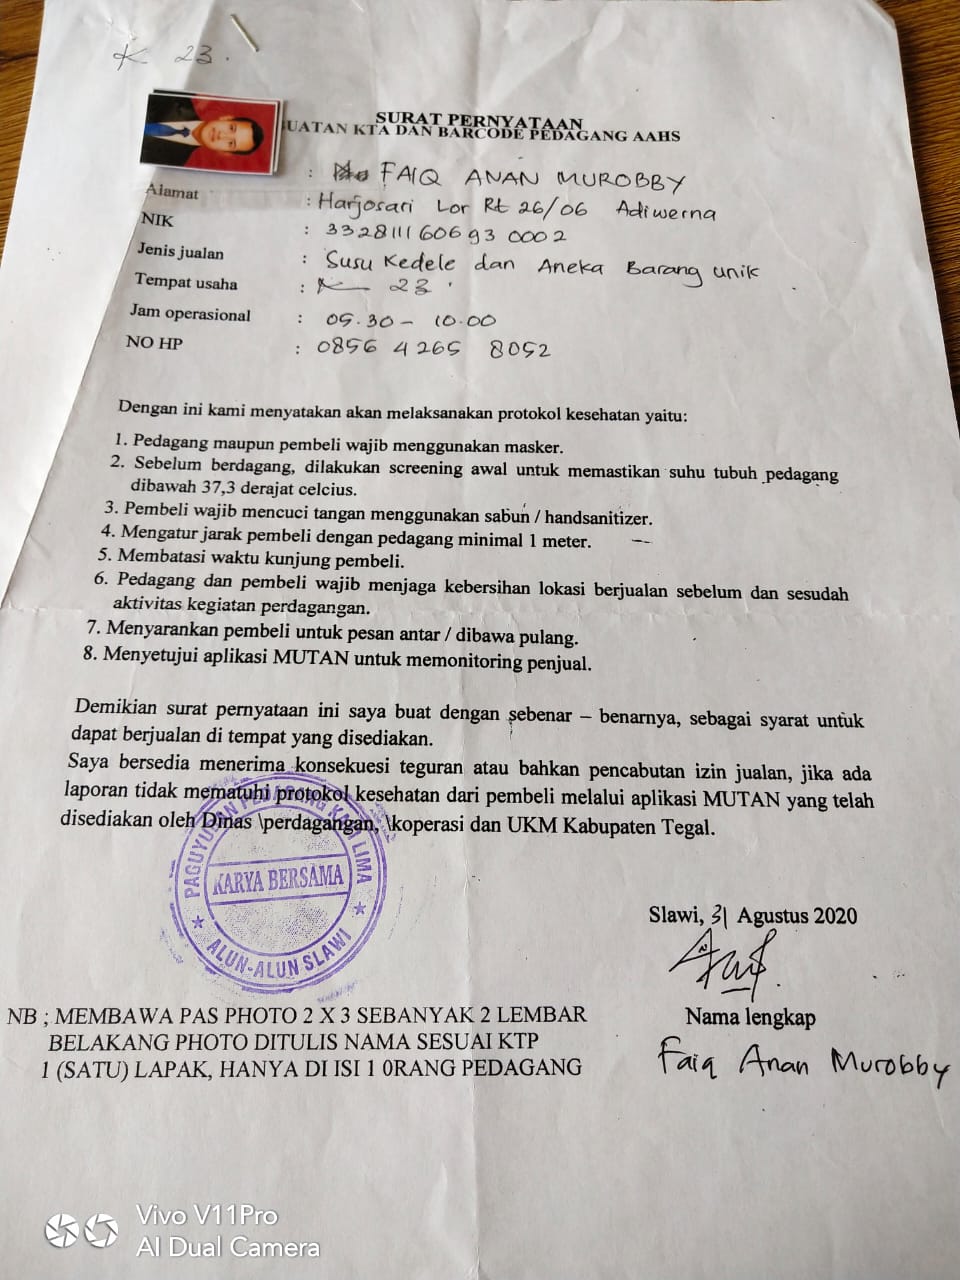 K 23.
SURAT PERNYATAAN
UATAN KTA DAN BARCODE PEDAGANG AAHS
: FAIQ ANAN MUROBBY
Alamat : Harjosari Lor Rt 26/06 Adiwerna
NIK : 3328111606930002
Jenis jualan : Susu Kedele dan Aneka Barang unik
Tempat usaha : K 23
Jam operasional : 05.30 - 10.00
NO HP : 0856 4265 8052
Dengan ini kami menyatakan akan melaksanakan protokol kesehatan yaitu:
1. Pedagang maupun pembeli wajib menggunakan masker.
2. Sebelum berdagang, dilakukan screening awal untuk memastikan suhu tubuh pedagang
dibawah 37,3 derajat celcius.
3. Pembeli wajib mencuci tangan menggunakan sabun / handsanitizer.
4. Mengatur jarak pembeli dengan pedagang minimal 1 meter.
5. Membatasi waktu kunjung pembeli.
6. Pedagang dan pembeli wajib menjaga kebersihan lokasi berjualan sebelum dan sesudah
aktivitas kegiatan perdagangan.
7. Menyarankan pembeli untuk pesan antar / dibawa pulang.
8. Menyetujui aplikasi MUTAN untuk memonitoring penjual.
Demikian surat pernyataan ini saya buat dengan sebenar – benarnya, sebagai syarat untuk
dapat berjualan di tempat yang disediakan.
Saya bersedia menerima konsekuesi teguran atau bahkan pencabutan izin jualan, jika ada
laporan tidak mematuhi protokol kesehatan dari pembeli melalui aplikasi MUTAN yang telah
disediakan oleh Dinas \perdagangan, \koperasi dan UKM Kabupaten Tegal.
PAGUYUBAN PEDAGANG KAKI LIMA
KARYA BERSAMA
ALUN-ALUN SLAWI
Slawi, 31 Agustus 2020
Nama lengkap
Faiq Anan Murobby
NB ; MEMBAWA PAS PHOTO 2 X 3 SEBANYAK 2 LEMBAR
BELAKANG PHOTO DITULIS NAMA SESUAI KTP
1 (SATU) LAPAK, HANYA DI ISI 1 0RANG PEDAGANG
Vivo V11Pro
AI Dual Camera